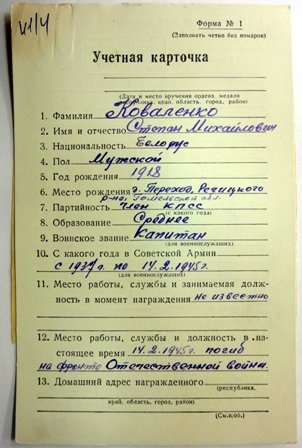 И/Ч
Форма № 1
(Заполнять четко без помарок)
Учетная карточка
(Дата и место вручения ордена, медали
республика, край, область, город, район)
1. Фамилия Коваленко
2. Имя и отчество Степан Михайлович
3. Национальность Белорус
4. Пол Мужской
5. Год рождения 1918
6. Место рождения д. Переход, Речицкого
р-на, Гомельской обл.
7. Партийность Член КПСС
(с какого года)
8. Образование Среднее
9. Воинское звание Капитан
(для военнослужащих)
10. С какого года в Советской Армии
с 1937г. по 14.2.1945г.
(для военнослужащих)
11. Место работы, службы и занимаемая долж-
ность в момент награждения не известно
12. Место работы, службы и должность в на-
стоящее время 14.2.1945г. погиб
на фронте Отечественной войны.
13. Домашний адрес награжденного
(республика,
край, область, город, район)
(См.н/об.)